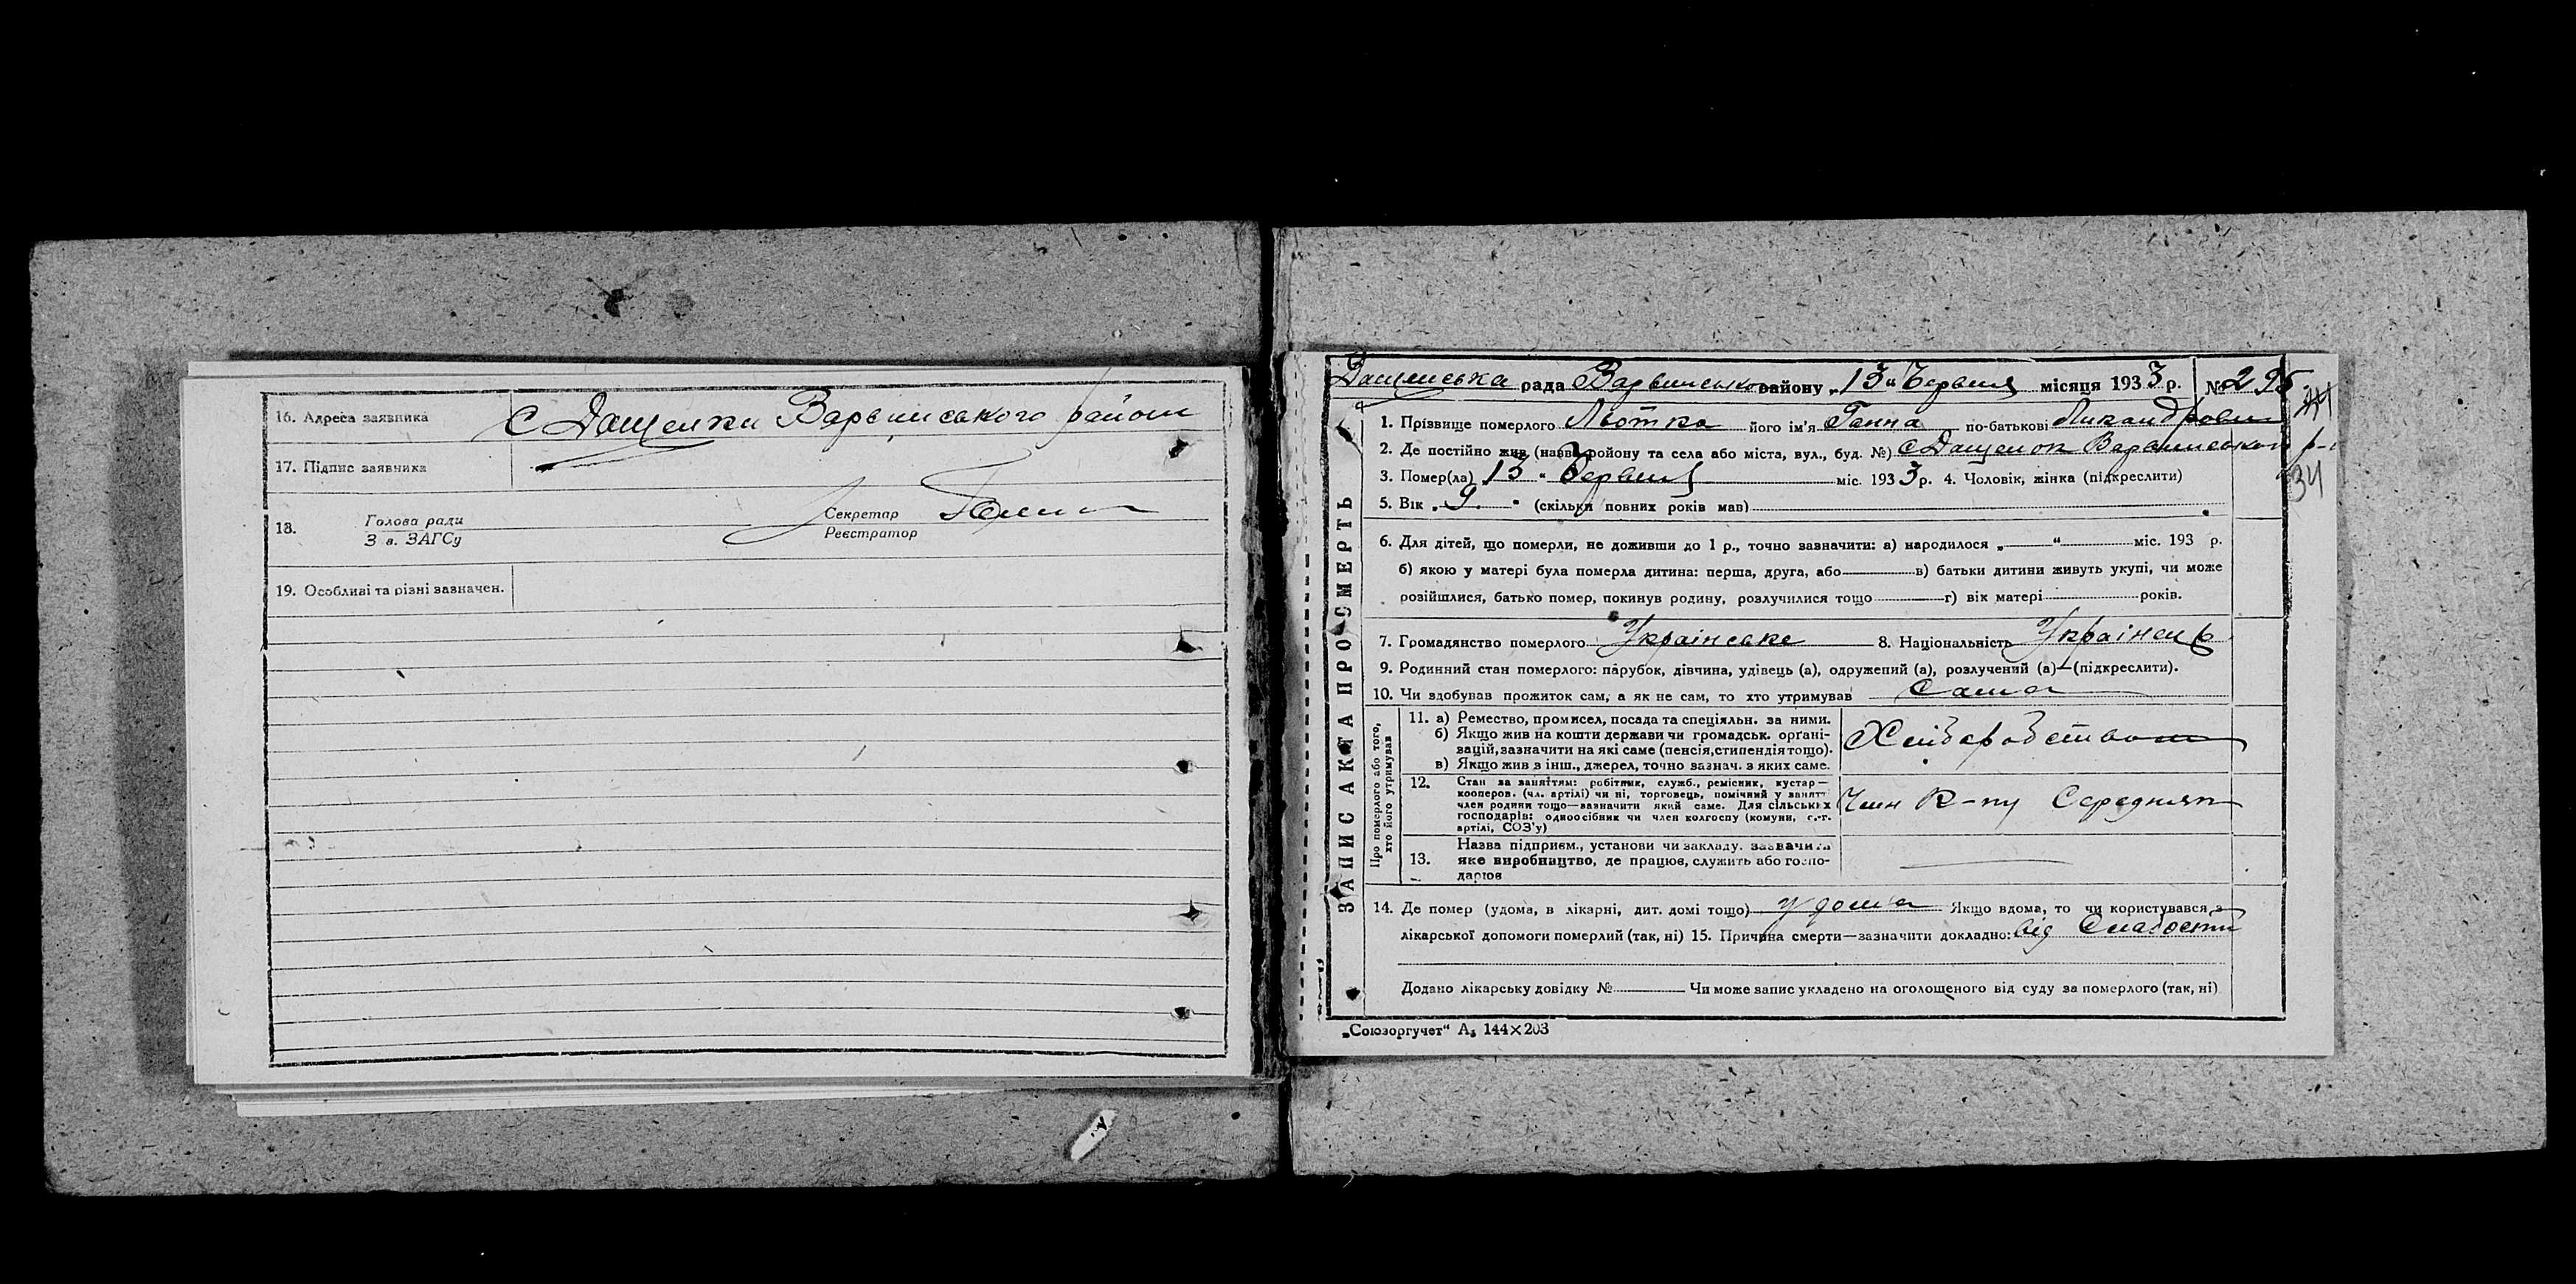 16. Адреса заявника С Дащенки Варвинського району
17. Підпис заявника
18. Голова ради
З в. ЗАГСу
Секретар
Реєстратор
19. Особливі та різні зазначен.
ЗАПИС АКТА ПРО СМЕРТЬ
Дащенська рада Варвинського району „13“ Червня місяця 1933 р. № 295
1. Прізвище померлого його ім'я Ганна по-батькові
2. Де постійно жив (назва району та села або міста, вул., буд. №) С Дащенок Варвинського р-
34
3. Помер(ла) 13 “ Червня міс. 1933 р. 4. Чоловік, жінка (підкреслити)
5. Вік „ 9 “ (скільки повних років мав)
6. Для дітей, що померли, не доживши до 1 р., точно зазначити: а) народилося „ “ міс. 193 р.
б) якою у матері була померла дитина: перша, друга, або в) батьки дитини живуть укупі, чи може
розійшлися, батько помер, покинув родину, розлучилися тощо г) вік матері років.
7. Громадянство померлого Українське 8. Національність Українець
9. Родинний стан померлого: парубок, дівчина, удівець (а), одружений (а), розлучений (а)—(підкреслити).
10. Чи здобував прожиток сам, а як не сам, то хто утримував Сама
Про померлого або того, хто його утримував
11. а) Ремество, промисел, посада та спеціяльн. за ними.
б) Якщо жив на кошти держави чи громадськ. орґані-
зацій, зазначити на які саме (пенсія, стипендія тощо).
в) Якщо жив з інш., джерел, точно зазнач. з яких саме.
Хліборобством
12. Стан за заняттям: робітник, служб., ремісник, кустар—
кооперов. (чл. артілі) чи ні, торговець, помічний у занятт
член родини тощо—зазначити який саме. Для сільських
господарів: одноосібник чи член колгоспу (комуни, с.-г.
артілі, СОЗ'у)
Член К-пу Середняк
13. Назва підприєм., установи чи закладу. зазначити
яке виробництво, де працює, служить або госпо-
дарює
14. Де помер (удома, в лікарні, дит. домі тощо) у дома Якщо вдома, то чи користувався з
лікарської допомоги померлий (так, ні) 15. Причина смерти—зазначити докладно: від Слабости
Додано лікарську довідку № Чи може запис укладено на оголошеного від суду за померлого (так, ні)
„Союзоргучет“ А₅ 144×203